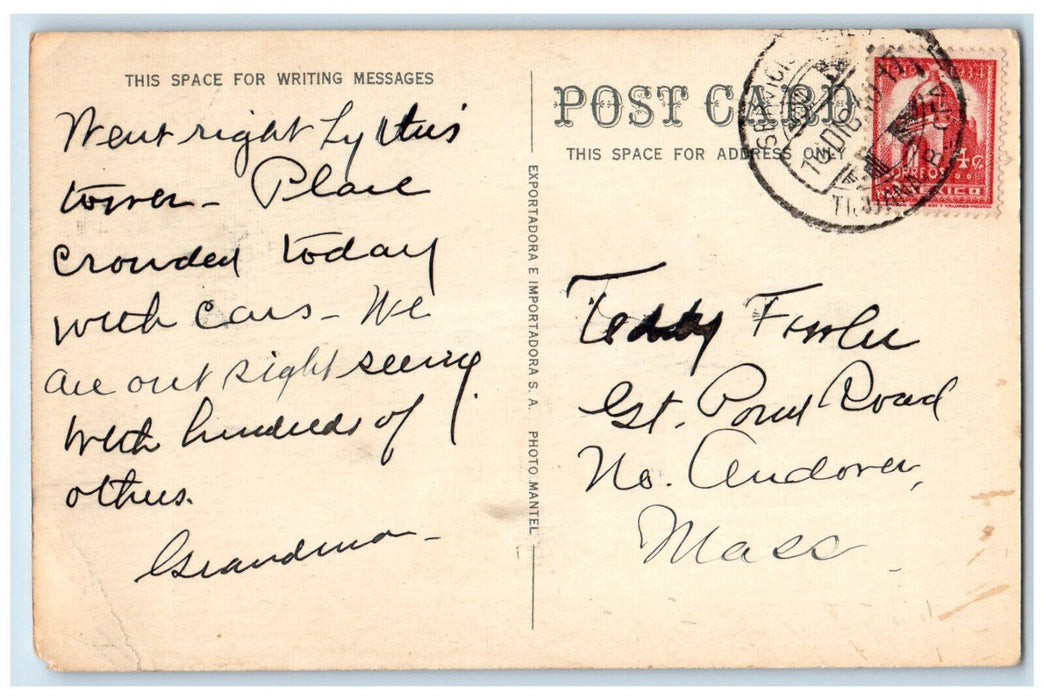 THIS SPACE FOR WRITING MESSAGES
Went right by this
tower - Place
crowded today
with cars - We
are out sight seeing
with hundreds of
others.
Grandma -
EXPORTADORA E IMPORTADORA S. A. PHOTO MANTEL
POST CARD
THIS SPACE FOR ADDRESS ONLY
Teddy
Gt. Pond Road
No. Andover,
Mass
SERVICIO
DIC
TIJUANA B. CFA
1934
4 c.
CORREOS
MEXICO